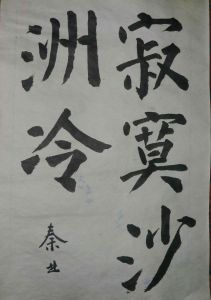 寂寞沙
洲冷
秦